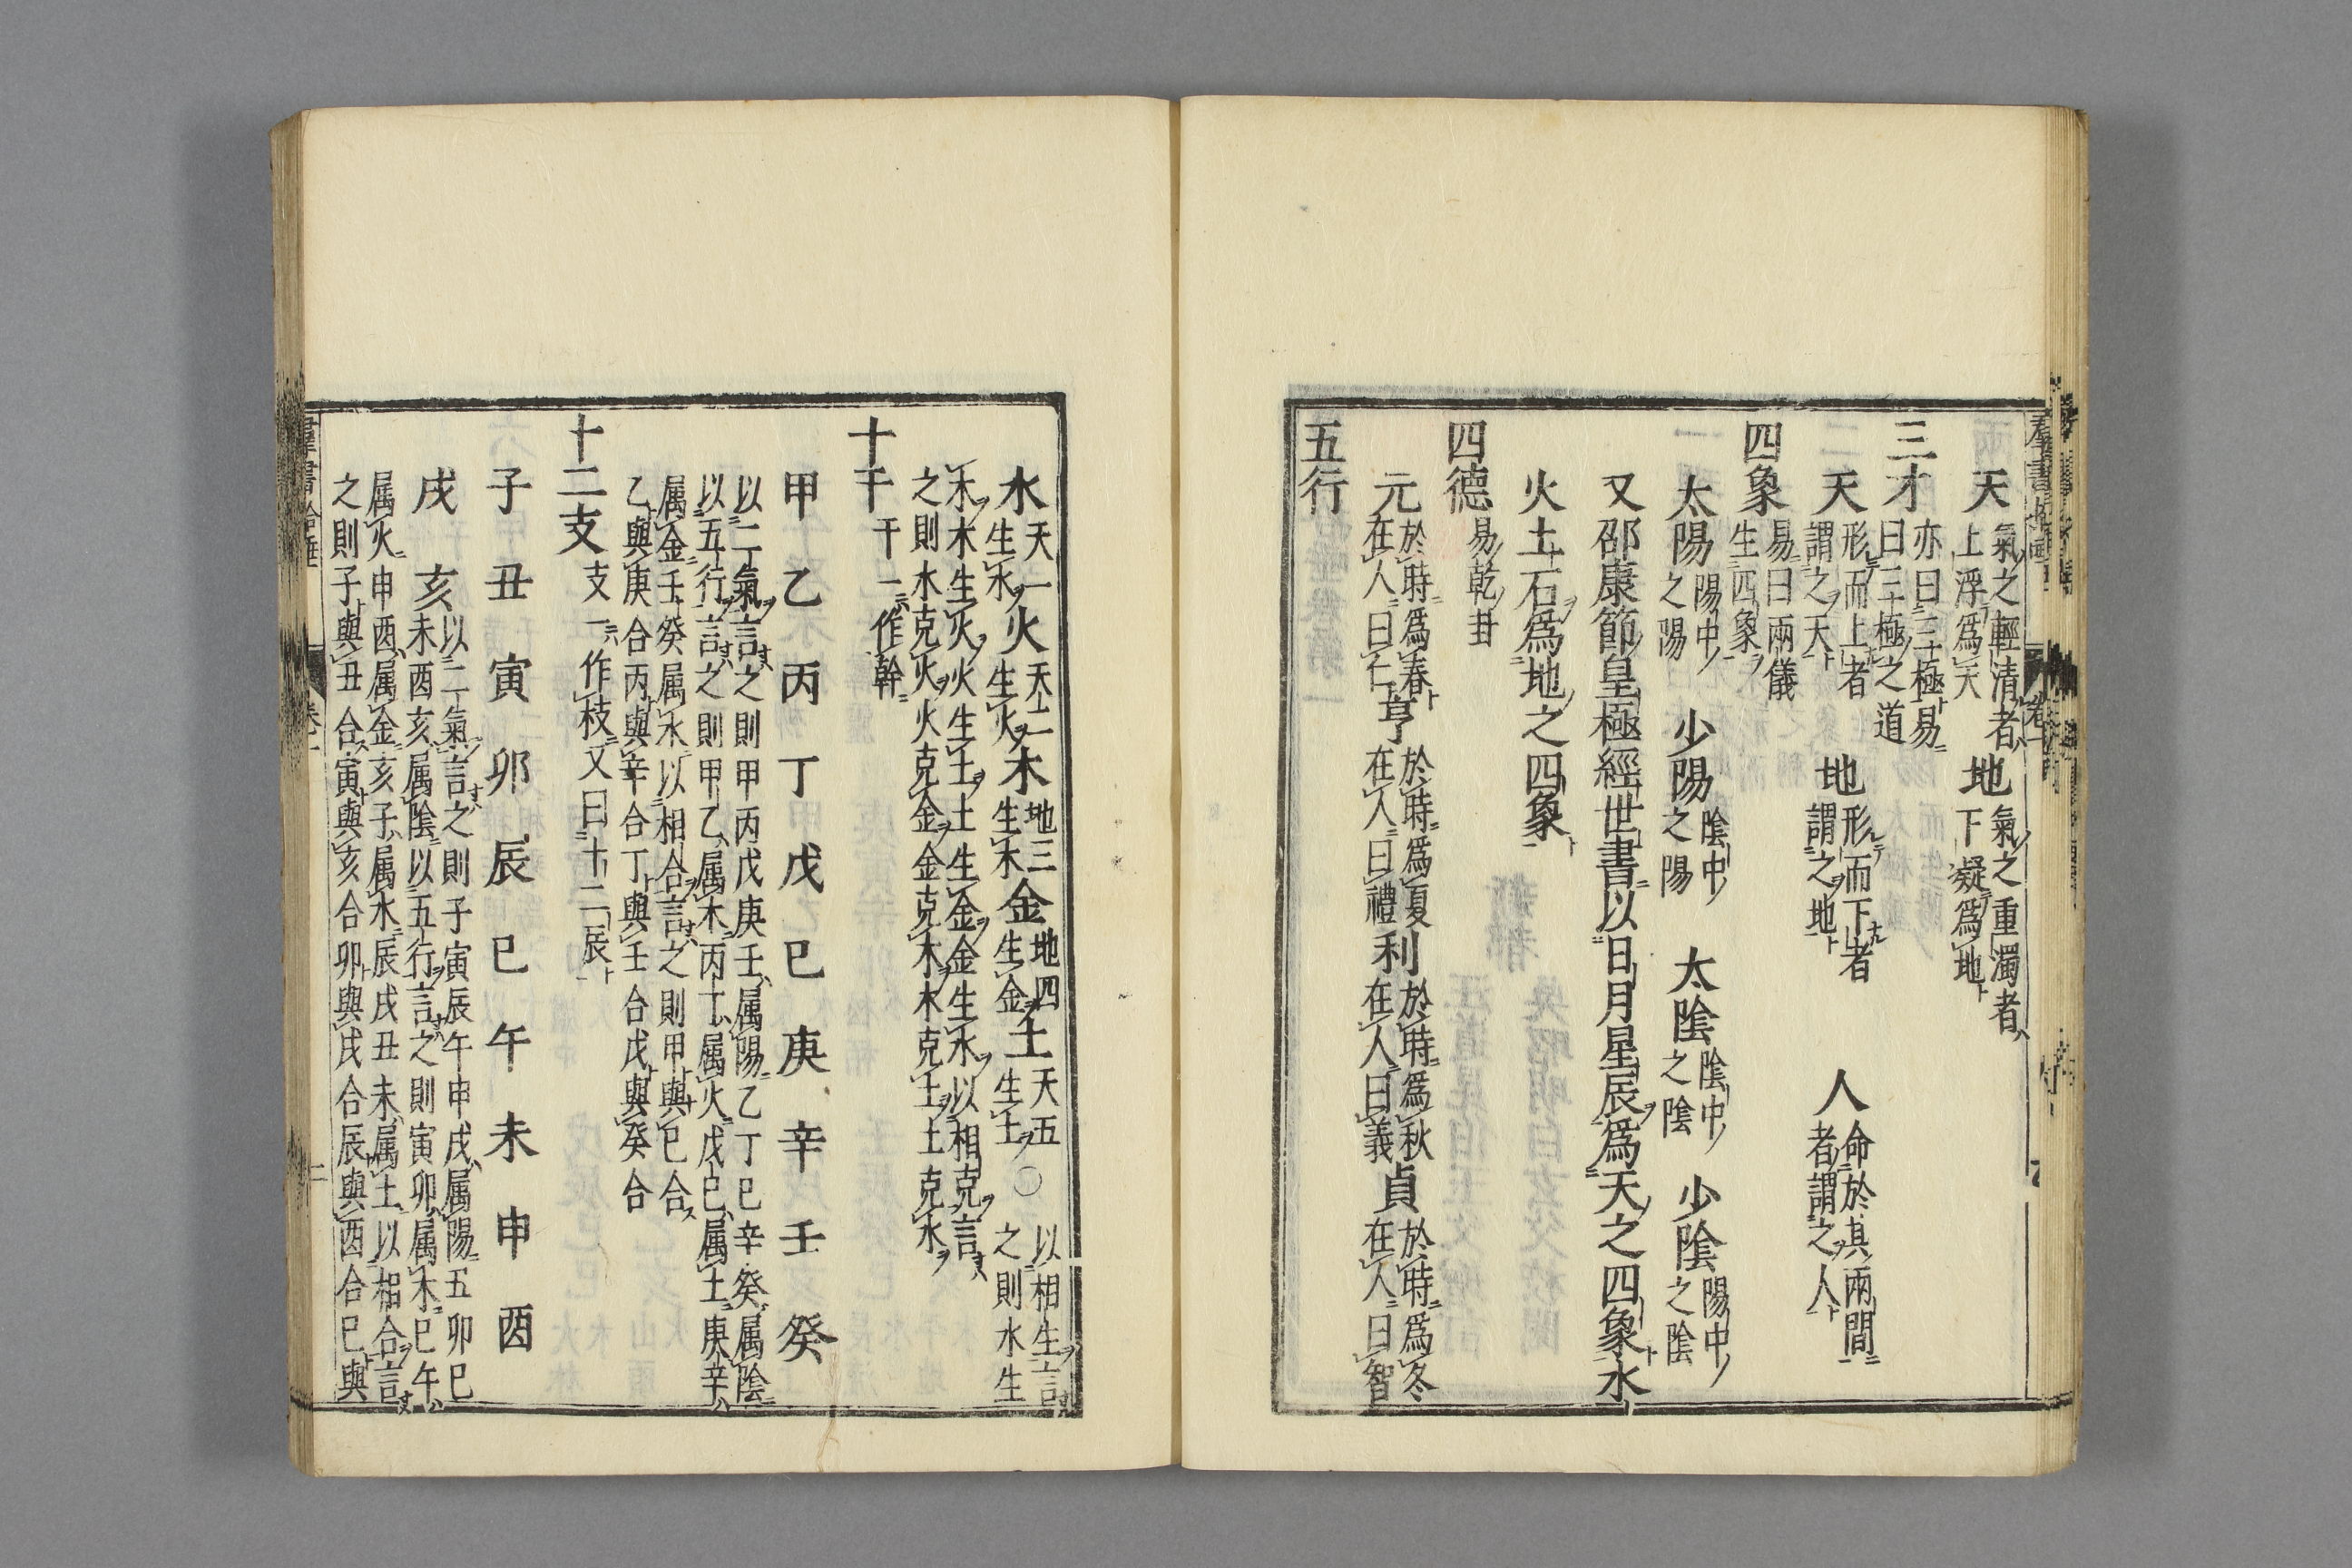 天氣之輕清者上浮爲天　地氣之重濁者下凝爲地
三才亦曰三極易曰三極之道
天形而上者謂之天　地形而下者謂之地　人命於其兩間者謂之人
四象易曰兩儀生四象
太陽陽中之陽　少陽陰中之陽　太陰陰中之陰　少陰陽中之陰
又邵康節皇極經世書以日月星辰爲天之四象水
火土石爲地之四象
四德易乾卦
元於時爲春在人曰仁亨於時爲夏在人曰禮利於時爲秋在人曰義貞於時爲冬在人曰智
五行
水天一生水火天二生火木地三生木金地四生金土天五生土○以相生言之則水生
木木生火火生土土生金金生水以相克言
之則水克火火克金金克木木克土土克水
十干干一作幹
甲乙丙丁戊巳庚辛壬癸
以二氣言之則甲丙戊庚壬属陽乙丁巳辛癸属陰
以五行言之則甲乙属木丙丁属火戊巳属土庚辛
属金壬癸属水以相合言之則甲與巳合
乙與庚合丙與辛合丁與壬合戊與癸合
十二支支一作枝又曰十二辰
子丑寅卯辰巳午未申酉
戌亥以二氣言之則子寅辰午申戌属陽丑卯巳
未酉亥属陰以五行言之則寅卯属木巳午
属火申酉属金亥子属水辰戌丑未属土以相合言
之則子與丑合寅與亥合卯與戌合辰與酉合巳與